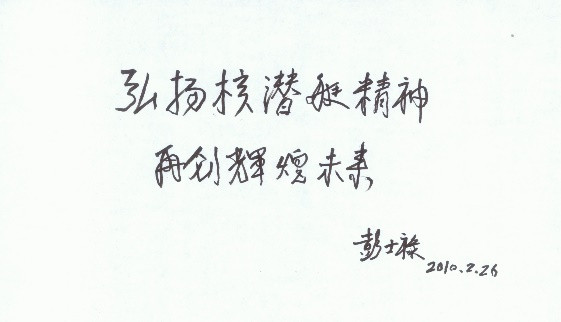 弘扬核潜艇精神
再创輝煌未来
彭士禄
2010.2.26